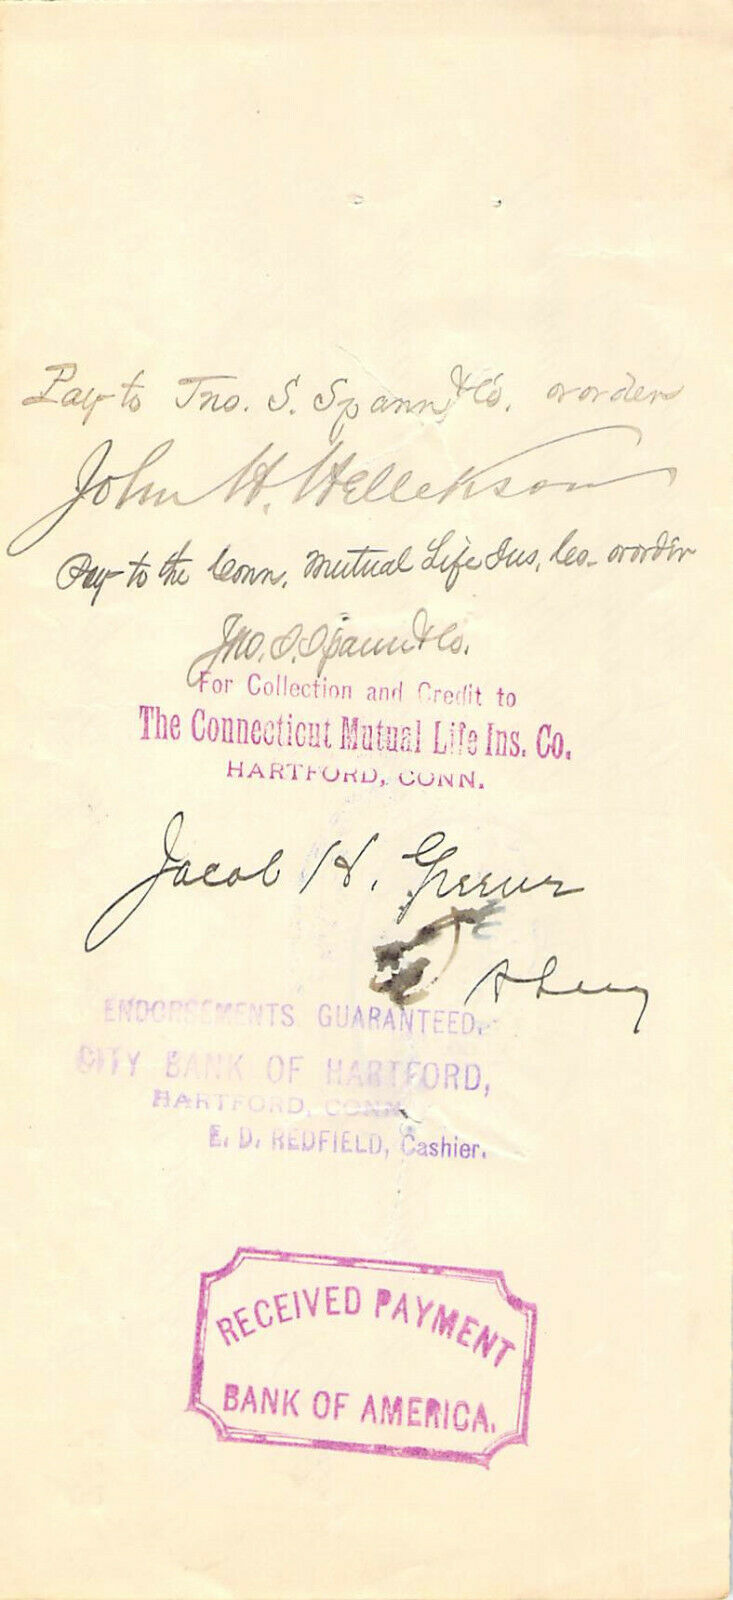 Pay to Jno. S. Spann & Co. or order
John H. Hellekson
Pay to the Conn. Mutual Life Ins. Co. or order
Jno. S. Spann & Co.
For Collection and Credit to
The Connecticut Mutual Life Ins. Co.
HARTFORD, CONN.
Jacob H. Greene
ENDORSEMENTS GUARANTEED.
CITY BANK OF HARTFORD,
HARTFORD, CONN.
E. D. REDFIELD, Cashier.
RECEIVED PAYMENT
BANK OF AMERICA.